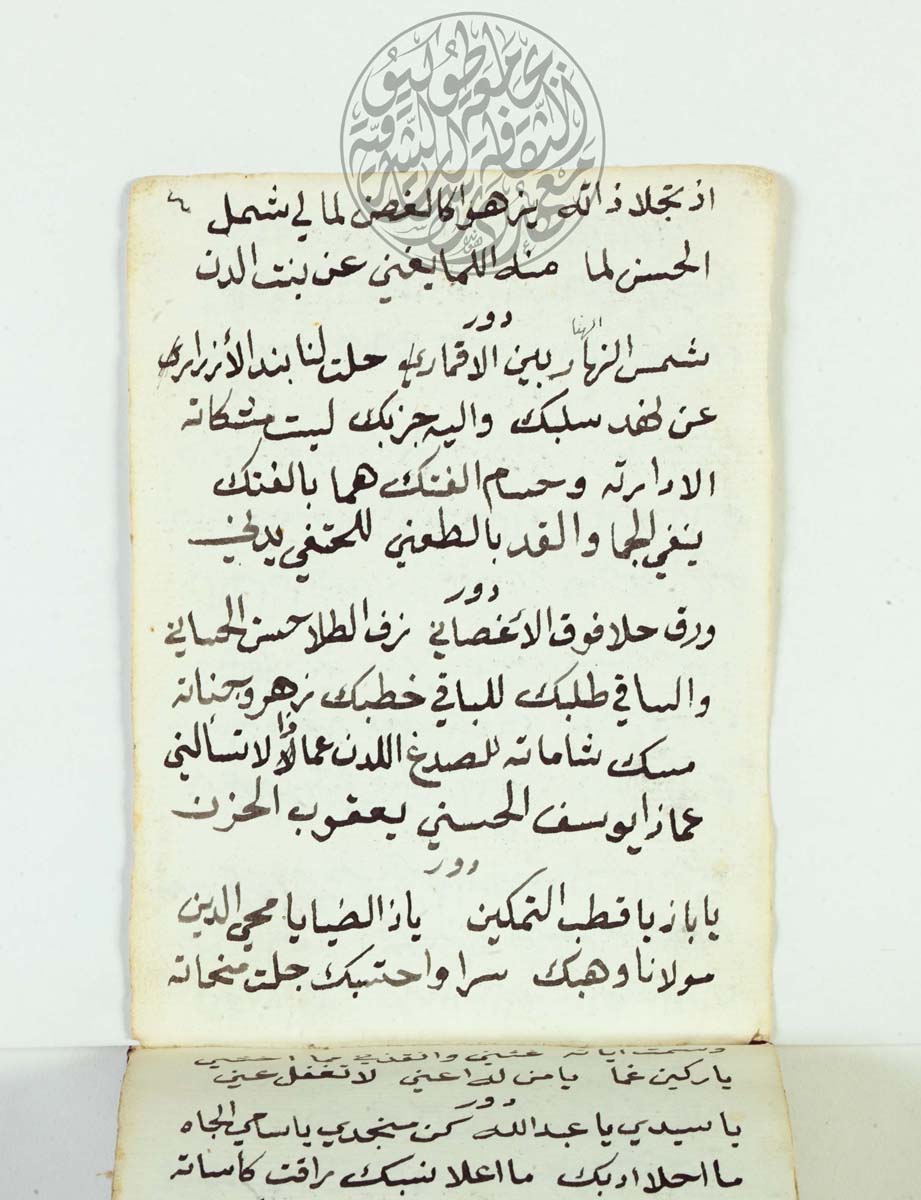 اذ تجلا ذاته يزهوا كالغصن لما لي شمل
الحسن لما منه اللما يغني عن بنت الدن
دور
الهنا
شمس النهار بين الاقماري حلت لنا بند الأزراري
عن نهد سلبك واليه جزبك ليت مشكاته
الا دارته وحسام الفتك هما بالفتك
ينفي الجما والقد بالطعني للحتفي يدني
دور
ورق حلا فوق الأغصاني زف الطلا حسن الحساني
والساقي طلبك للباقي خطبك زهر وجناته
مسك شاماته للصدغ اللدن عما لا لا تسالني
عماذا يوسف الحسني يعقوب الحزن
دور
يا باز يا قطب التمكين ياذ الضيا يا محي الدين
مولانا وهبك سرا واحتسبك جلت منحاته
عيني
يا ركين غما يا من له اعني لا تغفل عني
دور
يا سيدي يا عبد الله كن منجدي يا سامي الجاه
ما احلا ادبك ما اعلا نسبك راقت كاساته